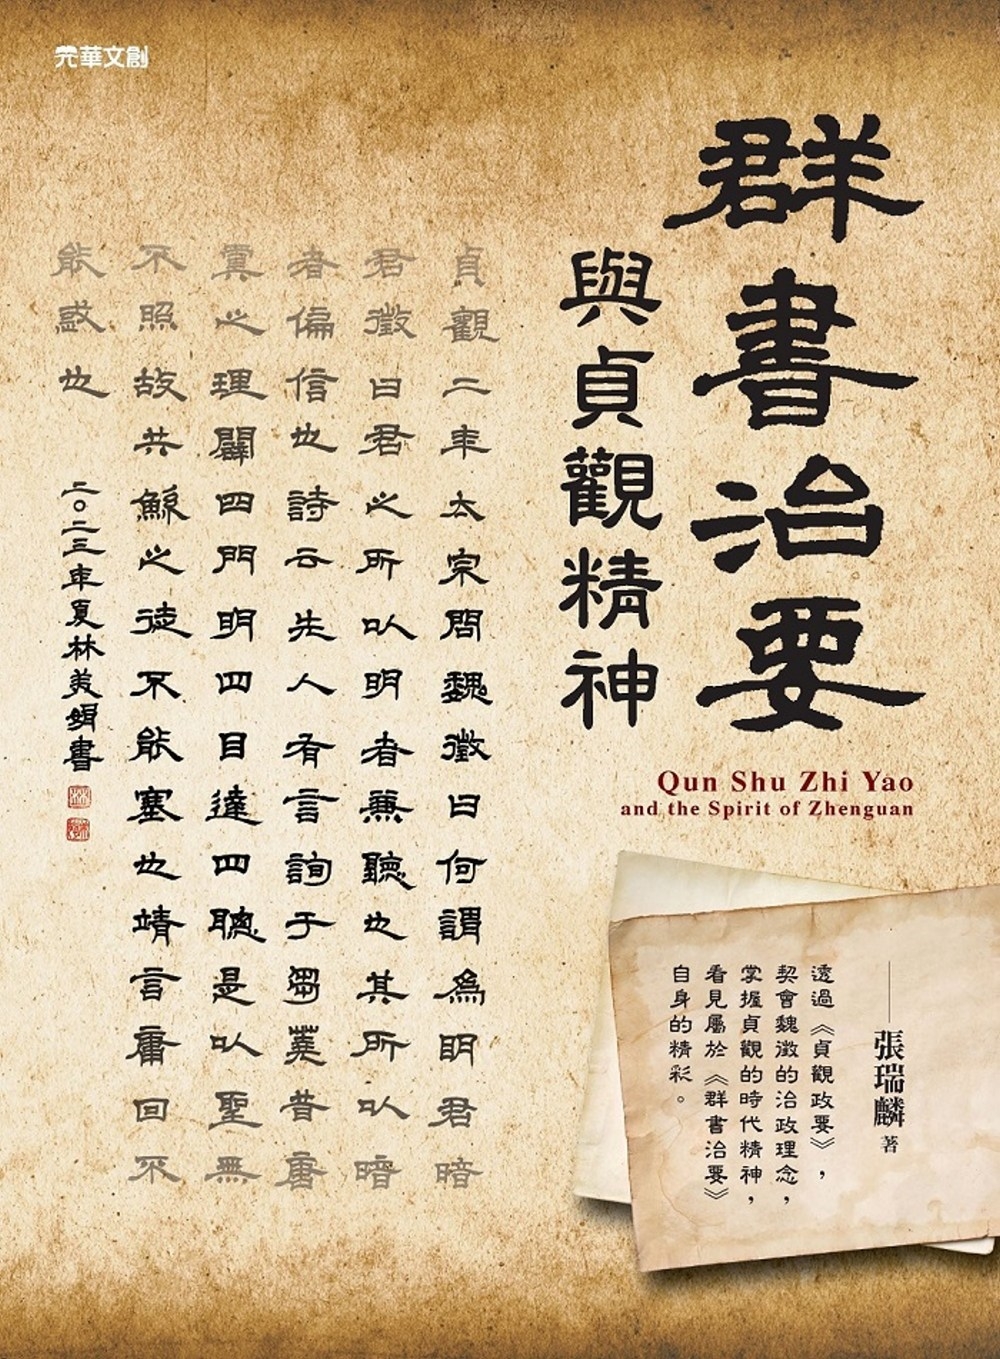 元華文創
群書治要
與貞觀精神
Qun Shu Zhi Yao
and the Spirit of Zhenguan
張瑞麟 著
透過《貞觀政要》，
契會魏徵的治政理念，
掌握貞觀的時代精神，
看見屬於《群書治要》
自身的精彩。
貞觀二年太宗問魏徵曰何謂為明君暗
君徵曰君之所以明者兼聽也其所以暗
者偏信也詩云先人有言詢于芻蕘昔唐
虞之理闢四門明四目達四聰是以聖無
不照故共鯀之徒不能塞也靖言庸回不
能惑也
二〇二三年夏林美娟書